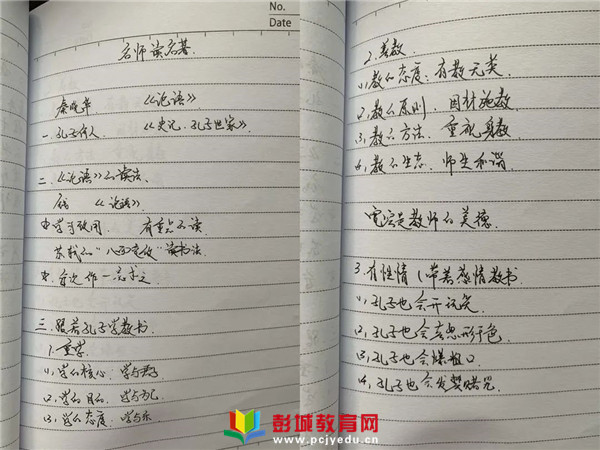 No.
Date
名师读名著.
秦晓华 《论语》
一.孔子何人 《史记·孔子世家》
二.《论语》的读法.
《论语》
学以致用 有重点的读
苏轼的"八面受敌"读书法
每次作一意求之
三.跟着孔子学教书
1.重学.
(1).学的核心:学与君子
(2).学的目的:学与为己
(3).学的态度:学与乐
2.善教.
(1).教的态度:有教无类
(2).教的原则:因材施教
(3).教的方法:重视身教
(4).教的生态:师生和谐
宽容是教师的美德.
3.有性情(带着感情教书
(1).孔子也会开玩笑
(2).孔子也会喜怒形于色
(3).孔子也会爆粗口
(4).孔子也会发誓赌咒
彭城教育网
www.pcjyedu.cn